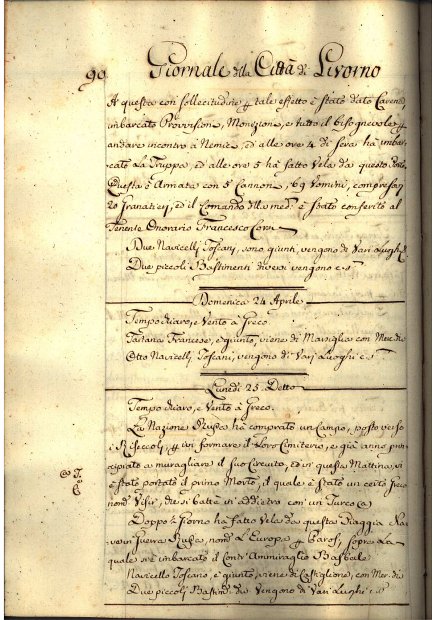 90 Giornale della Città di Livorno
A questa con sollecitudine tale effetto è stato dato Carena
imbarcato Provvision, Monizion, e tutto il bisognevole
andare incontro à Nemici, ed alle ore 4. di sera hà imbar-
cato la Truppa, ed alle ore 5 hà fatto Vela da questo
Questa è Armata con 5 Cannon, 69 Vomini, compresovi
20 Granatieri, ed il Comando della med: è stato conferito al
Tenente Onorario Francesco
Due Navicelli Toscani, sono giunti, vengono di Varj Luoghi
Due piccoli Bastimenti diversi vengono
Domenica 24 Aprile
Tempo chiaro, e Vento a Greco
Tartana Francese, è giunto, viene di Marsiglia con Merc. die
Otto Navicelli Toscani, vengono di Varj Luoghi
Lunedi 25. Detto
Tempo chiaro, e Vento à Greco.
La Nazione Russa hà comprato un Campo, posto verso
i Riseccoli, in formare il loro Cimiterio, e già anno prin-
cipiato a muragliare il suo Circuito, ed in questa Mattina vi
è stato portato il primo Morto, il quale è stato un certo Greco
nom: Visir, che si battè in addietro con un Turco
Doppo Giorno hà fatto Vela da questa Piaggia
in Guerra Russa, nom: L'Europa Paros, sopra la
quale s'è imbarcato il Contr'Ammiraglio
Navicello Toscano, è giunto, viene di Castiglione, con Mer. die
Due piccoli Bastim: die Vengono di Varj Luoghi